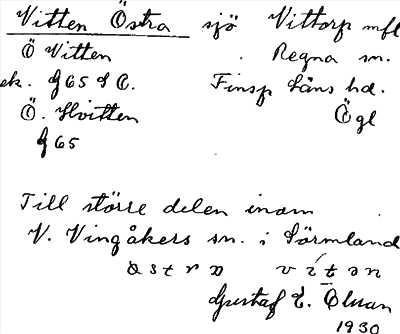 Vitten Östra sjö Vittorp mfl
Ö Vitten Regna sn.
ek. f 65 S O. Finsp Läns hd.
Ö. Hvitten Ögl
f 65
Till större delen inom
V. Vingåkers sn. i Sörmland
östra vitən
Gustaf E. Ölman
1930